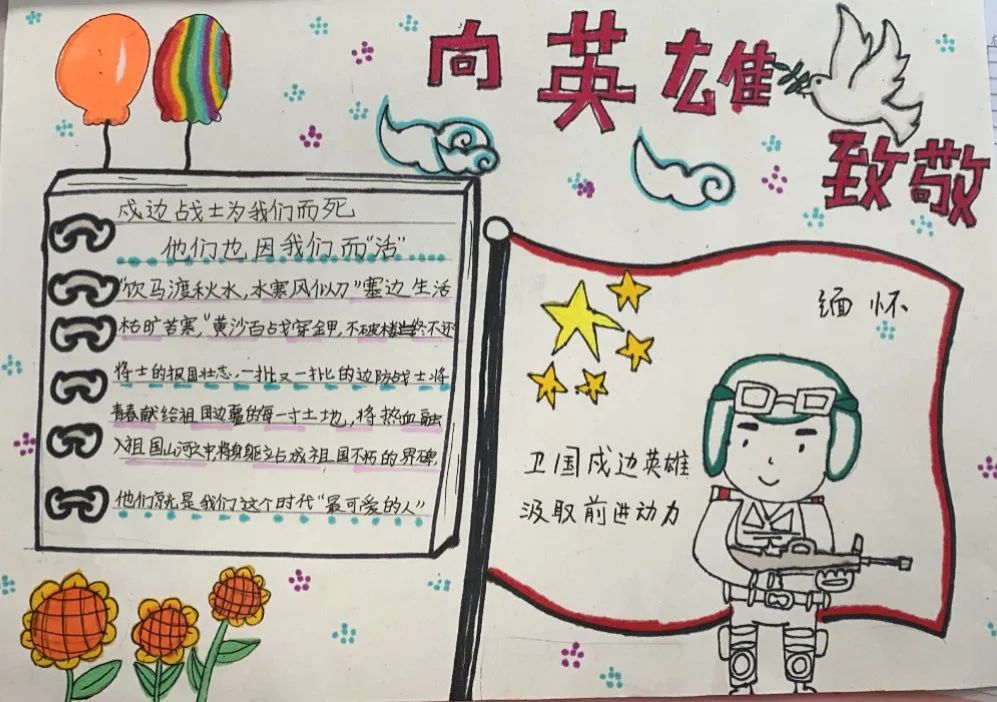 向英雄
致敬
戍边战士为我们而死
他们也因我们而"活"
"饮马渡秋水，水寒风似刀"塞边生活
枯旷苦寒，"黄沙百战穿金甲，不破楼兰终不还
将士的报国壮志，一批又一批的边防战士将
青春献给祖国边疆的每一寸土地，将热血融
入祖国山河之中将身躯立成祖国不朽的界碑，
他们就是我们这个时代"最可爱的人"
缅怀
卫国戍边英雄
汲取前进动力